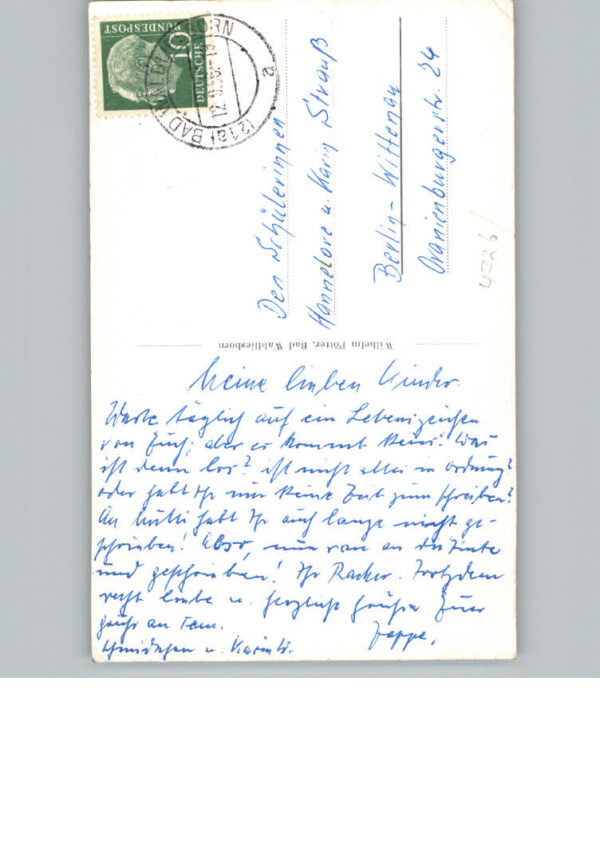 10
DEUTSCHE
BUNDESPOST
(21a) BAD
a
Den Schülerinnen
Hannelore u. Karin Strauß
Berlin-Wittenau
Oranienburgerstr. 24
4226/
Wilhelm Pötter, Bad Waldliesborn
Meine lieben Kinder.
Warte täglich auf ein Lebenszeichen
von Euch; aber es kommt keins. Was
ist denn los? ist nicht alles in Ordnung?
oder habt Ihr nur keine Zeit zum schreiben?
An Mutti habt Ihr auch lange nicht ge-
schrieben! Also, nun ran an die Tinte
und geschrieben! Ihr Racker. Trotzdem
recht liebe u. herzliche Grüße Euer
Grüße an Fam.
u.